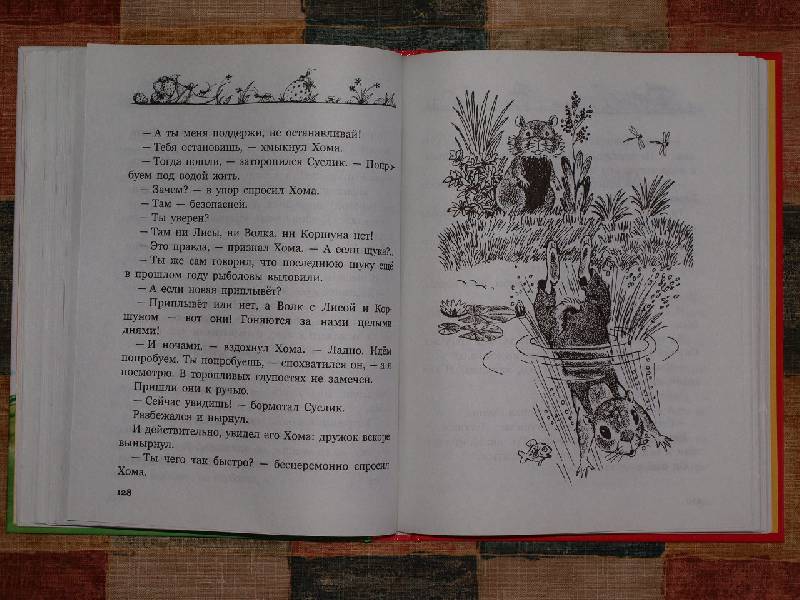 — А ты меня поддержи, не останавливай!
— Тебя остановишь, — хмыкнул Хома.
— Тогда пошли, — заторопился Суслик. — Попро-
буем под водой жить.
— Зачем? — в упор спросил Хома.
— Там — безопасней.
— Ты уверен?
— Там ни Лисы, ни Волка, ни Коршуна нет!
— Это правда, — признал Хома. — А если щука?..
— Ты же сам говорил, что последнюю щуку ещё
в прошлом году рыболовы выловили.
— А если новая приплывёт?
— Приплывёт или нет, а Волк с Лисой и Кор-
шуном — вот они! Гоняются за нами целыми
днями!
— И ночами, — вздохнул Хома. — Ладно. Идём
попробуем. Ты попробуешь, — спохватился он, — а я
посмотрю. В торопливых глупостях не замечен.
Пришли они к ручью.
— Сейчас увидишь! — бормотал Суслик.
Разбежался и нырнул.
И действительно, увидел его Хома: дружок вскоре
вынырнул.
— Ты чего так быстро? — бесцеремонно спросил
Хома.
128